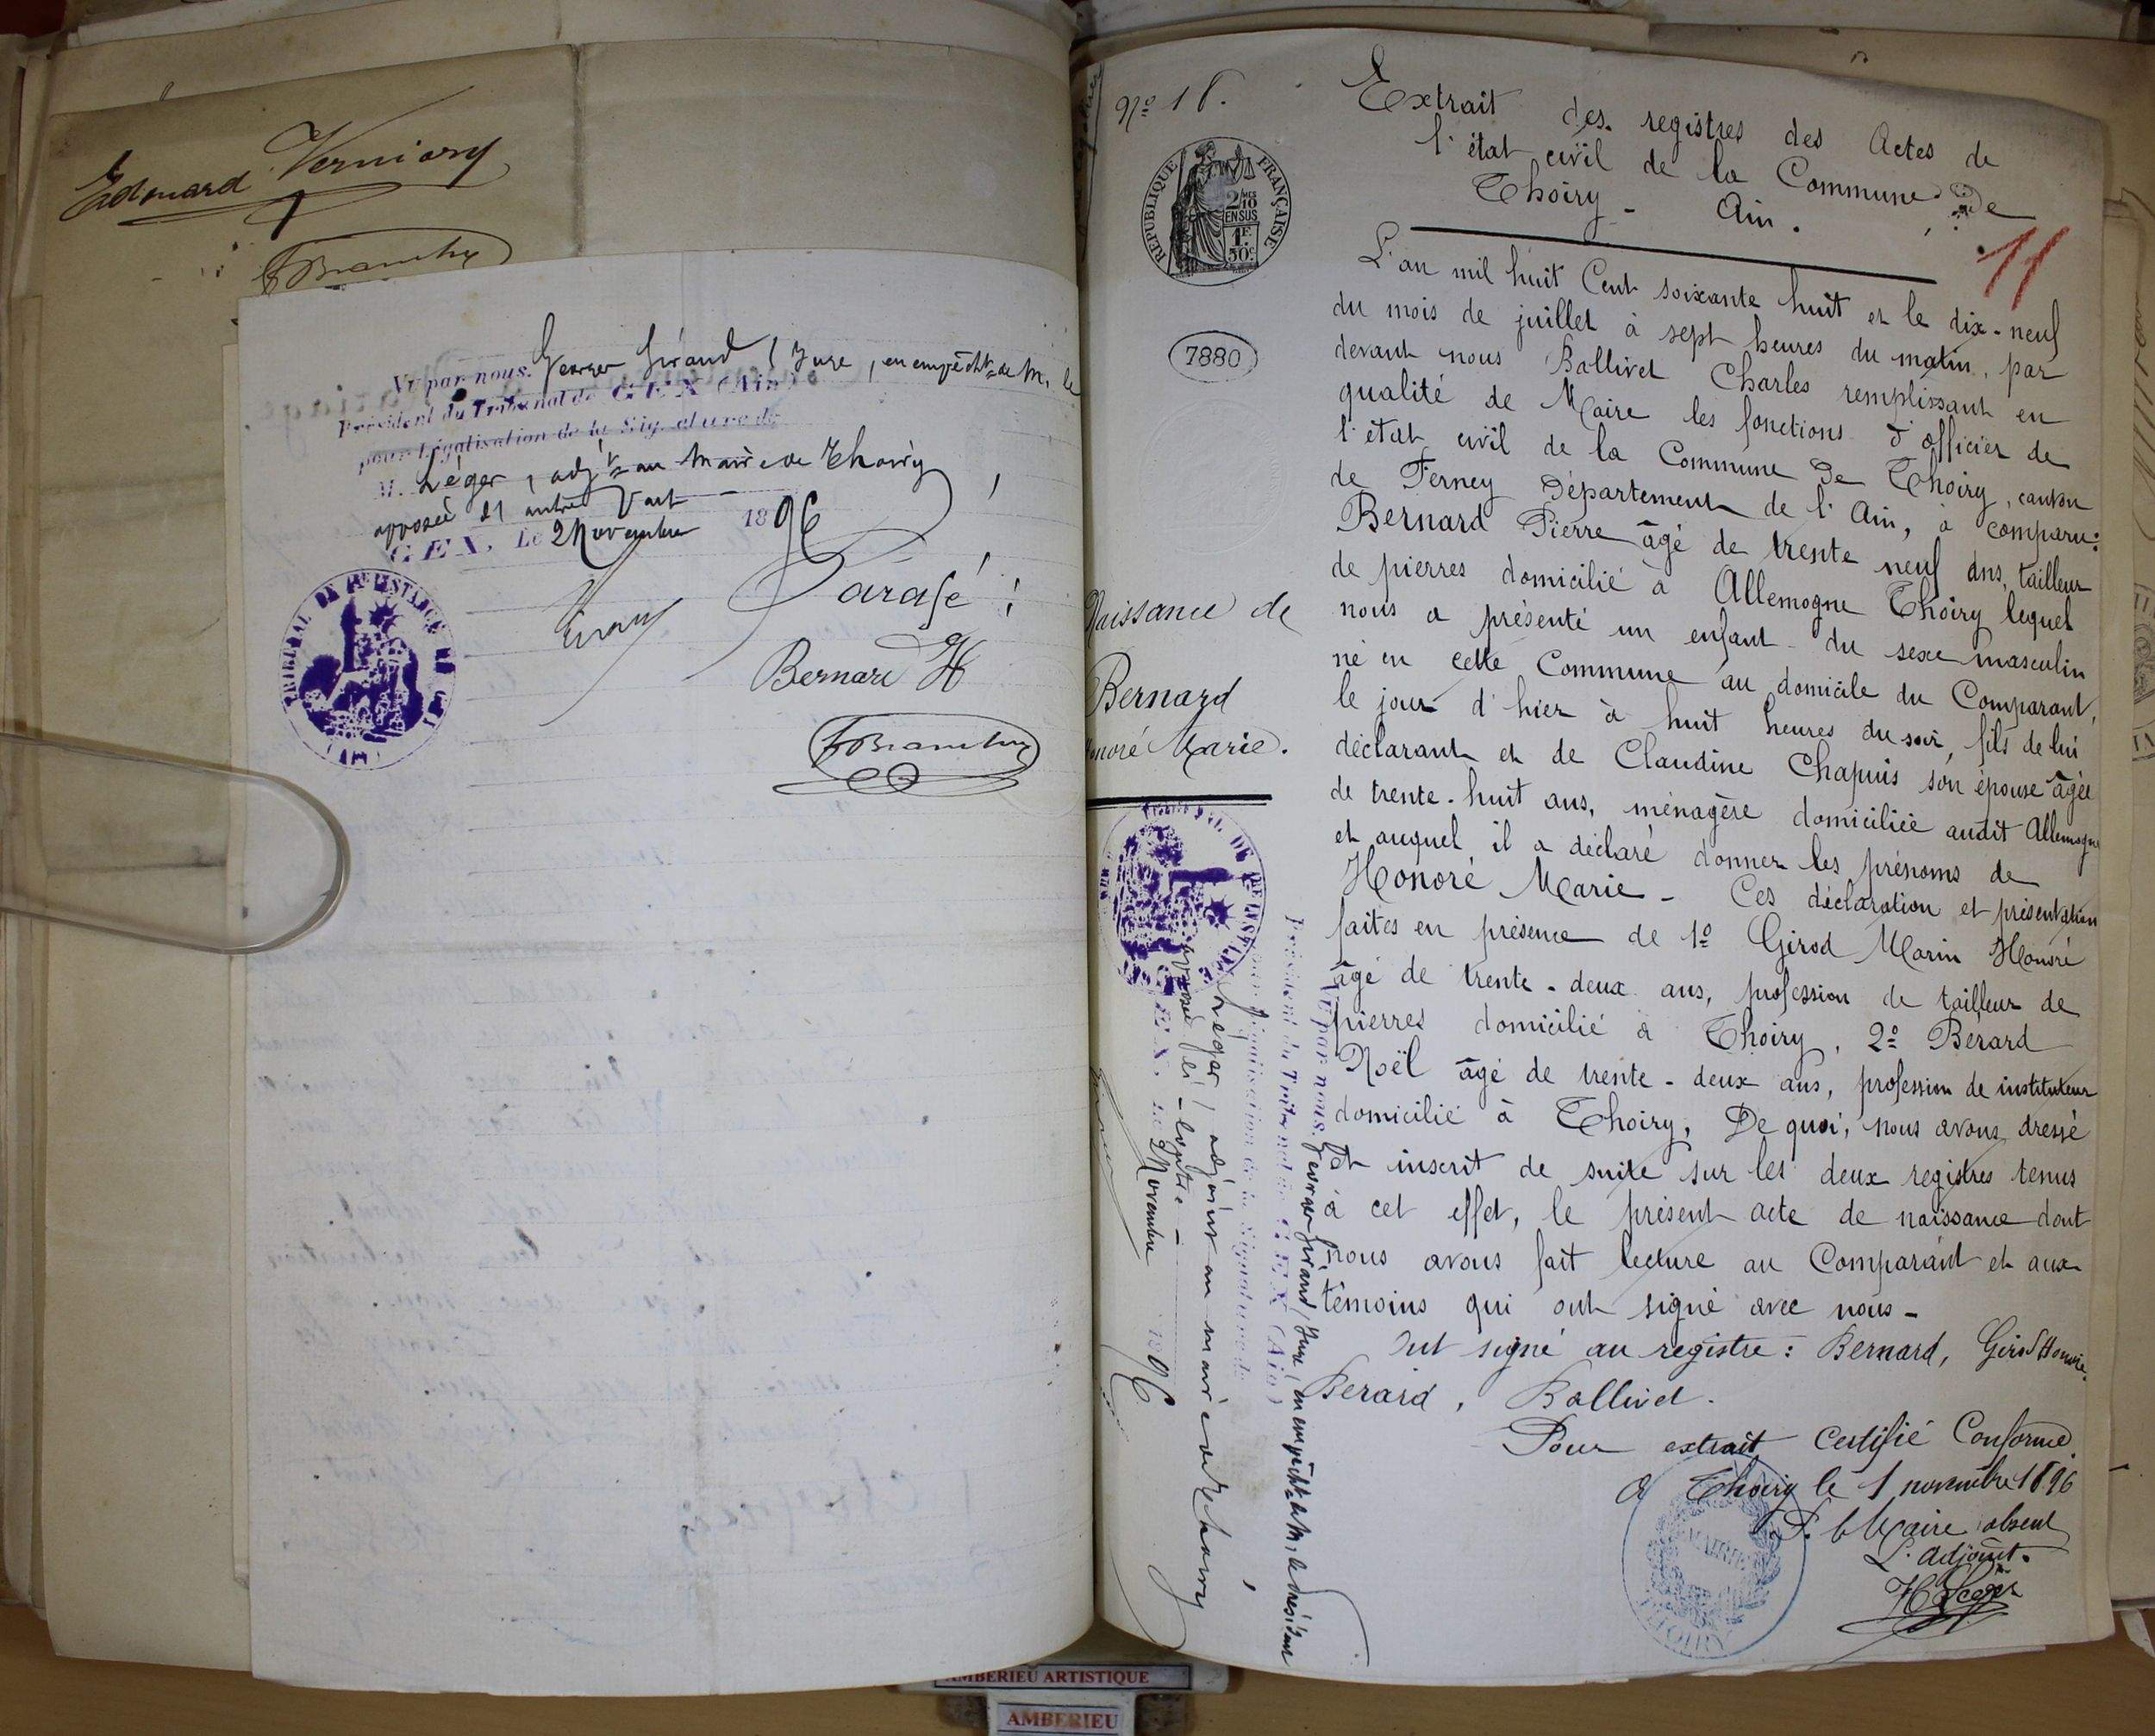 Edouard Verniory
Vu par nous. Georges Giraud, Juge, en empêcht de M. le
Président du Tribunal de GEX (Ain)
pour Légalisation de la Signature de
M. Léger, adjt au Maire de Thoiry
apposée et autre part
GEX, Le 2 Novembre 1896
TRIBUNAL DE 1RE INSTANCE DE GEX (AIN)
Parafé :
Bernard H
N° 18.
REPUBLIQUE FRANÇAISE
2/10 MES
EN SUS
1F.
50c
7880
Naissance de
Bernard
Honoré Marie.
Extrait des registres des Actes de
l'état civil de la Commune de
Thoiry - Ain.
11
L'an mil huit Cent soixante huit et le dix-neuf
du mois de juillet à sept heures du matin, par
devant nous Ballivet Charles remplissant en
qualité de Maire les fonctions d'officier de
l'état civil de la Commune de Thoiry, canton
de Ferney Département de l'Ain, à comparu:
Bernard Pierre âgé de trente neuf ans, tailleur
de pierres domicilié à Allemogne Thoiry lequel
nous a présenté un enfant du sexe masculin
né en cette Commune au domicile du Comparant,
le jour d'hier à huit heures du soir, fils de lui
déclarant et de Claudine Chapuis son épouse âgée
de trente-huit ans, ménagère domiciliée audit Allemogne
et auquel il a déclaré donner les prénoms de
Honoré Marie - Ces déclaration et présentation
faites en présence de 1° Girod Marin Honoré
âgé de trente-deux ans, profession de tailleur de
pierres domicilié à Thoiry, 2° Bérard
Noël âgé de trente-deux ans, profession de instituteur
domicilié à Thoiry, De quoi, nous avons dressé
et inscrit de suite sur les deux registres tenus
à cet effet, le présent acte de naissance dont
nous avons fait lecture au Comparant et aux
témoins qui ont signé avec nous -
Ont signé au registre : Bernard, Girod Honoré,
Bérard, Ballivet.
Pour extrait Certifié Conforme.
à Thoiry le 1 novembre 1896
P. le Maire absent
L'adjoint.
H Léger
MAIRIE
THOIRY
Vu par nous. Georges Giraud, Juge, en empêcht de M. le Président
Président du Tribunal de GEX (Ain)
pour Légalisation de la Signature de
Léger, adjoint au maire de Thoiry
apposée ci-contre -
GEX, Le 2 Novembre 1896
AMBERIEU ARTISTIQUE
AMBERIEU